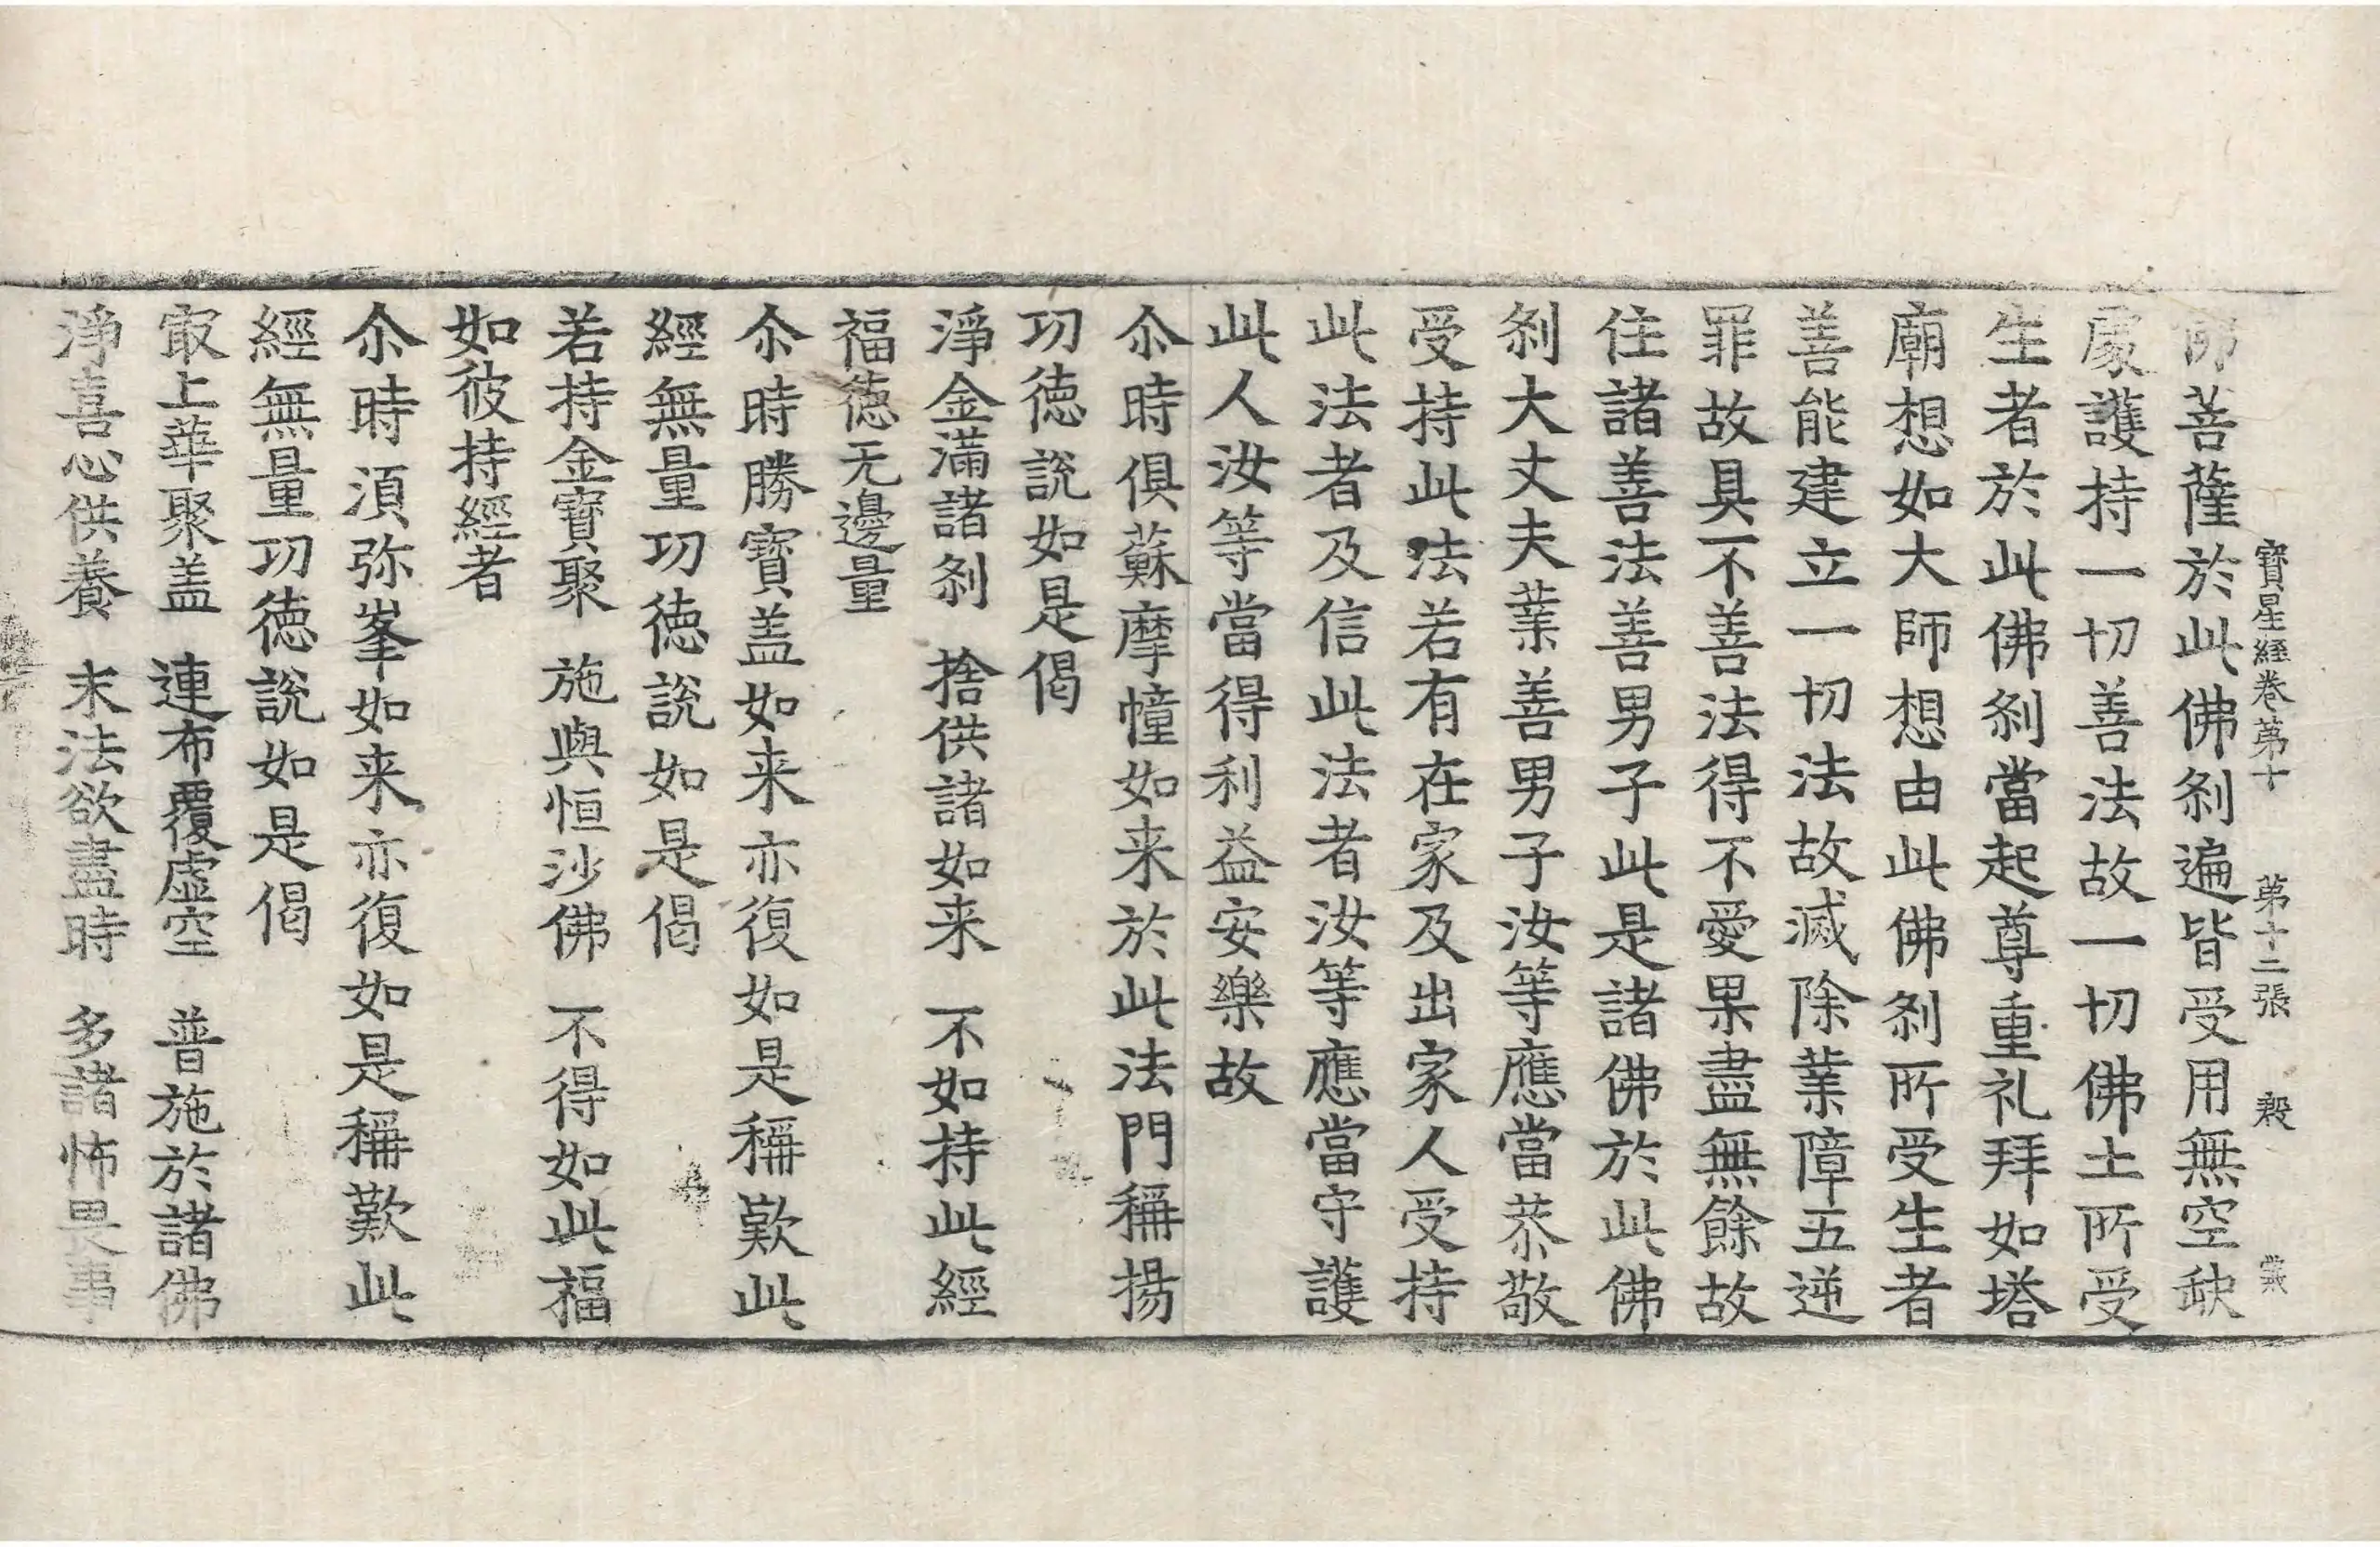 寶星經卷第十　第十二張　殷
師菩薩於此佛刹遍皆受用無空缺
處護持一切善法故一切佛土所受
生者於此佛刹當起尊重礼拜如塔
廟想如大師想由此佛刹所受生者
善能建立一切法故滅除業障五逆
罪故具不善法得不愛果盡無餘故
住諸善法善男子此是諸佛於此佛
刹大丈夫業善男子汝等應當恭敬
受持此法若有在家及出家人受持
此法者及信此法者汝等應當守護
此人汝等當得利益安樂故
尒時俱蘇摩幢如来於此法門稱揚
功徳說如是偈
淨金滿諸刹　捨供諸如来　不如持此經
福徳无邊量
尒時勝寶盖如来亦復如是稱歎此
經無量功徳說如是偈
若持金寶聚　施與恒沙佛　不得如此福
如彼持經者
尒時湏弥峯如来亦復如是稱歎此
經無量功徳說如是偈
㝡上華聚盖　連布覆虛空　普施於諸佛
淨喜心供養　末法欲盡時　多諸怖畏事